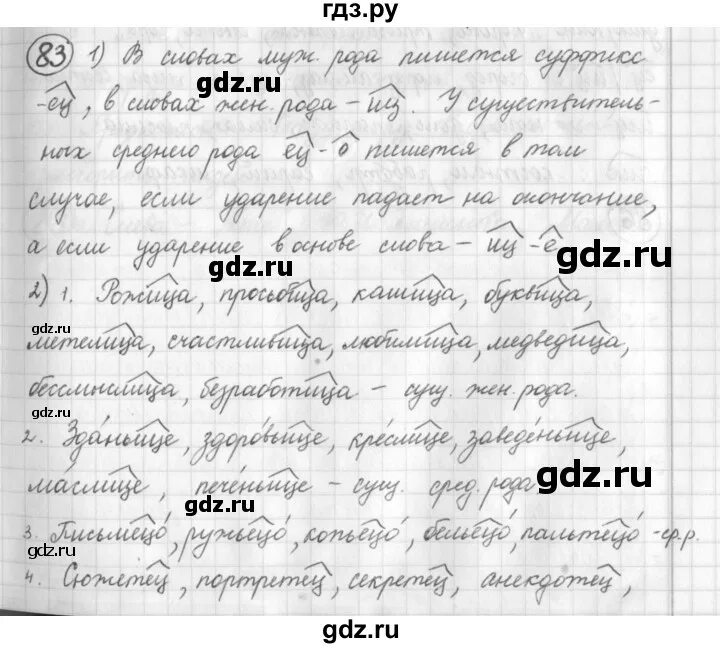 гдз.ру
83 1) В словах муж. рода пишется суффикс
-ец, в словах жен. рода - иц. У существитель-
ных среднего рода ец-о пишется в том
случае, если ударение падает на окончание,
а если ударение в основе слова - иц-е.
gdz.ru
2) 1. Рожица, просьбица, кашица, буквица,
gdz.ru gdz.ru
метелица, счастливица, любимица, медведица,
gdz.ru
бессмыслица, безработица - сущ. жен. рода.
gdz.ru
2. Зда́ньице, здоро́вьице, кре́слице, заведе́ньице,
gdz.ru
ма́слице, пече́ньице - сущ. сред. рода
gdz.ru
3. Письмецо́, ружьецо́, копьецо́, бельецо́, пальтецо́ - ср.р.
gdz.ru
4. Сюжетец, портретец, секретец, анекдотец,
gdz.ru gdz.ru